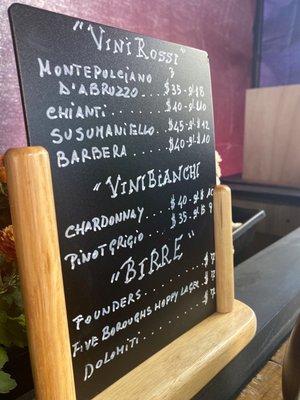 "Vini Rossi"
MONTEPULCIANO
D'ABRUZZO.... $35-gl $8
CHIANTI........ $40-gl 10
SUSUMANIELLO..$45-gl $12
BARBERA.......$40-gl $10
"VINI BIANCHI"
CHARDONNAY....$40-gl $10
PINOT GRIGIO...$35-gl $9
"BIRRE"
FOUNDERS..........$7
FIVE BOROUGHS HOPPY LAGER..$7
DOLOMITI..........$7